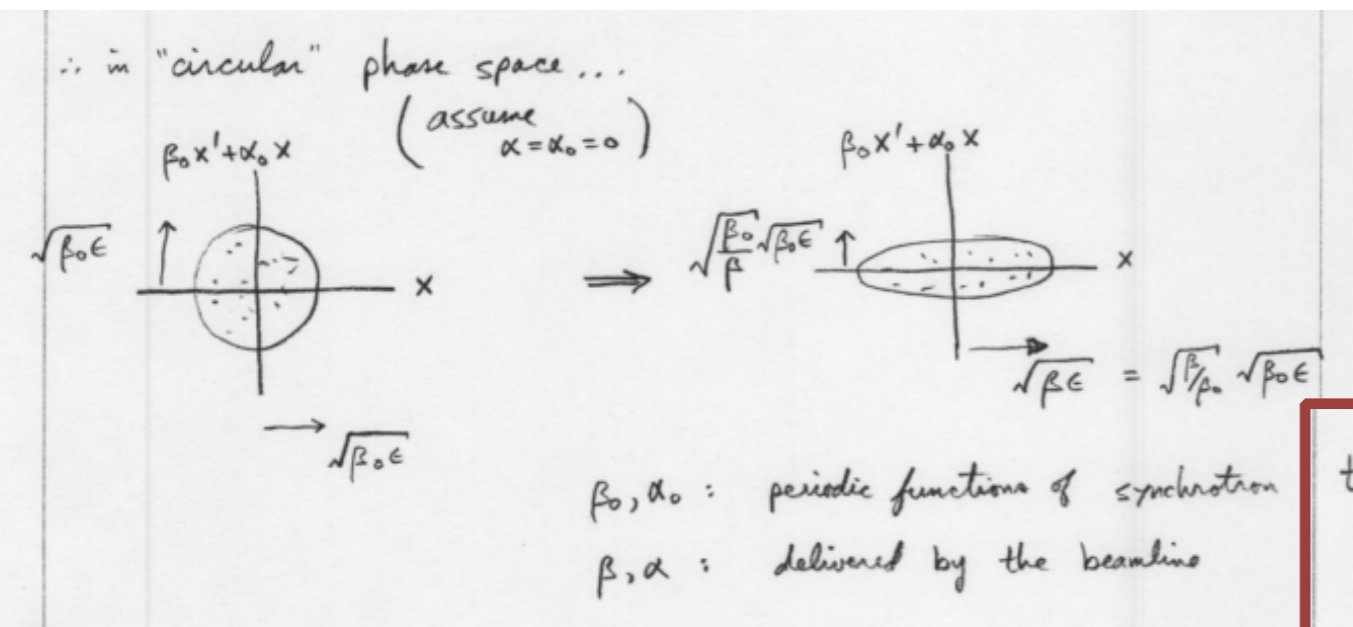 ∴ in "circular" phase space...
(assume
α = α₀ = 0)
β₀x' + α₀x
√(β₀ε)
x
√(β₀ε)
⇒
β₀x' + α₀x
√(β₀/β) √(β₀ε)
x
√(βε) = √(β/β₀) √(β₀ε)
β₀, α₀ : periodic functions of synchrotron
β, α : delivered by the beamline